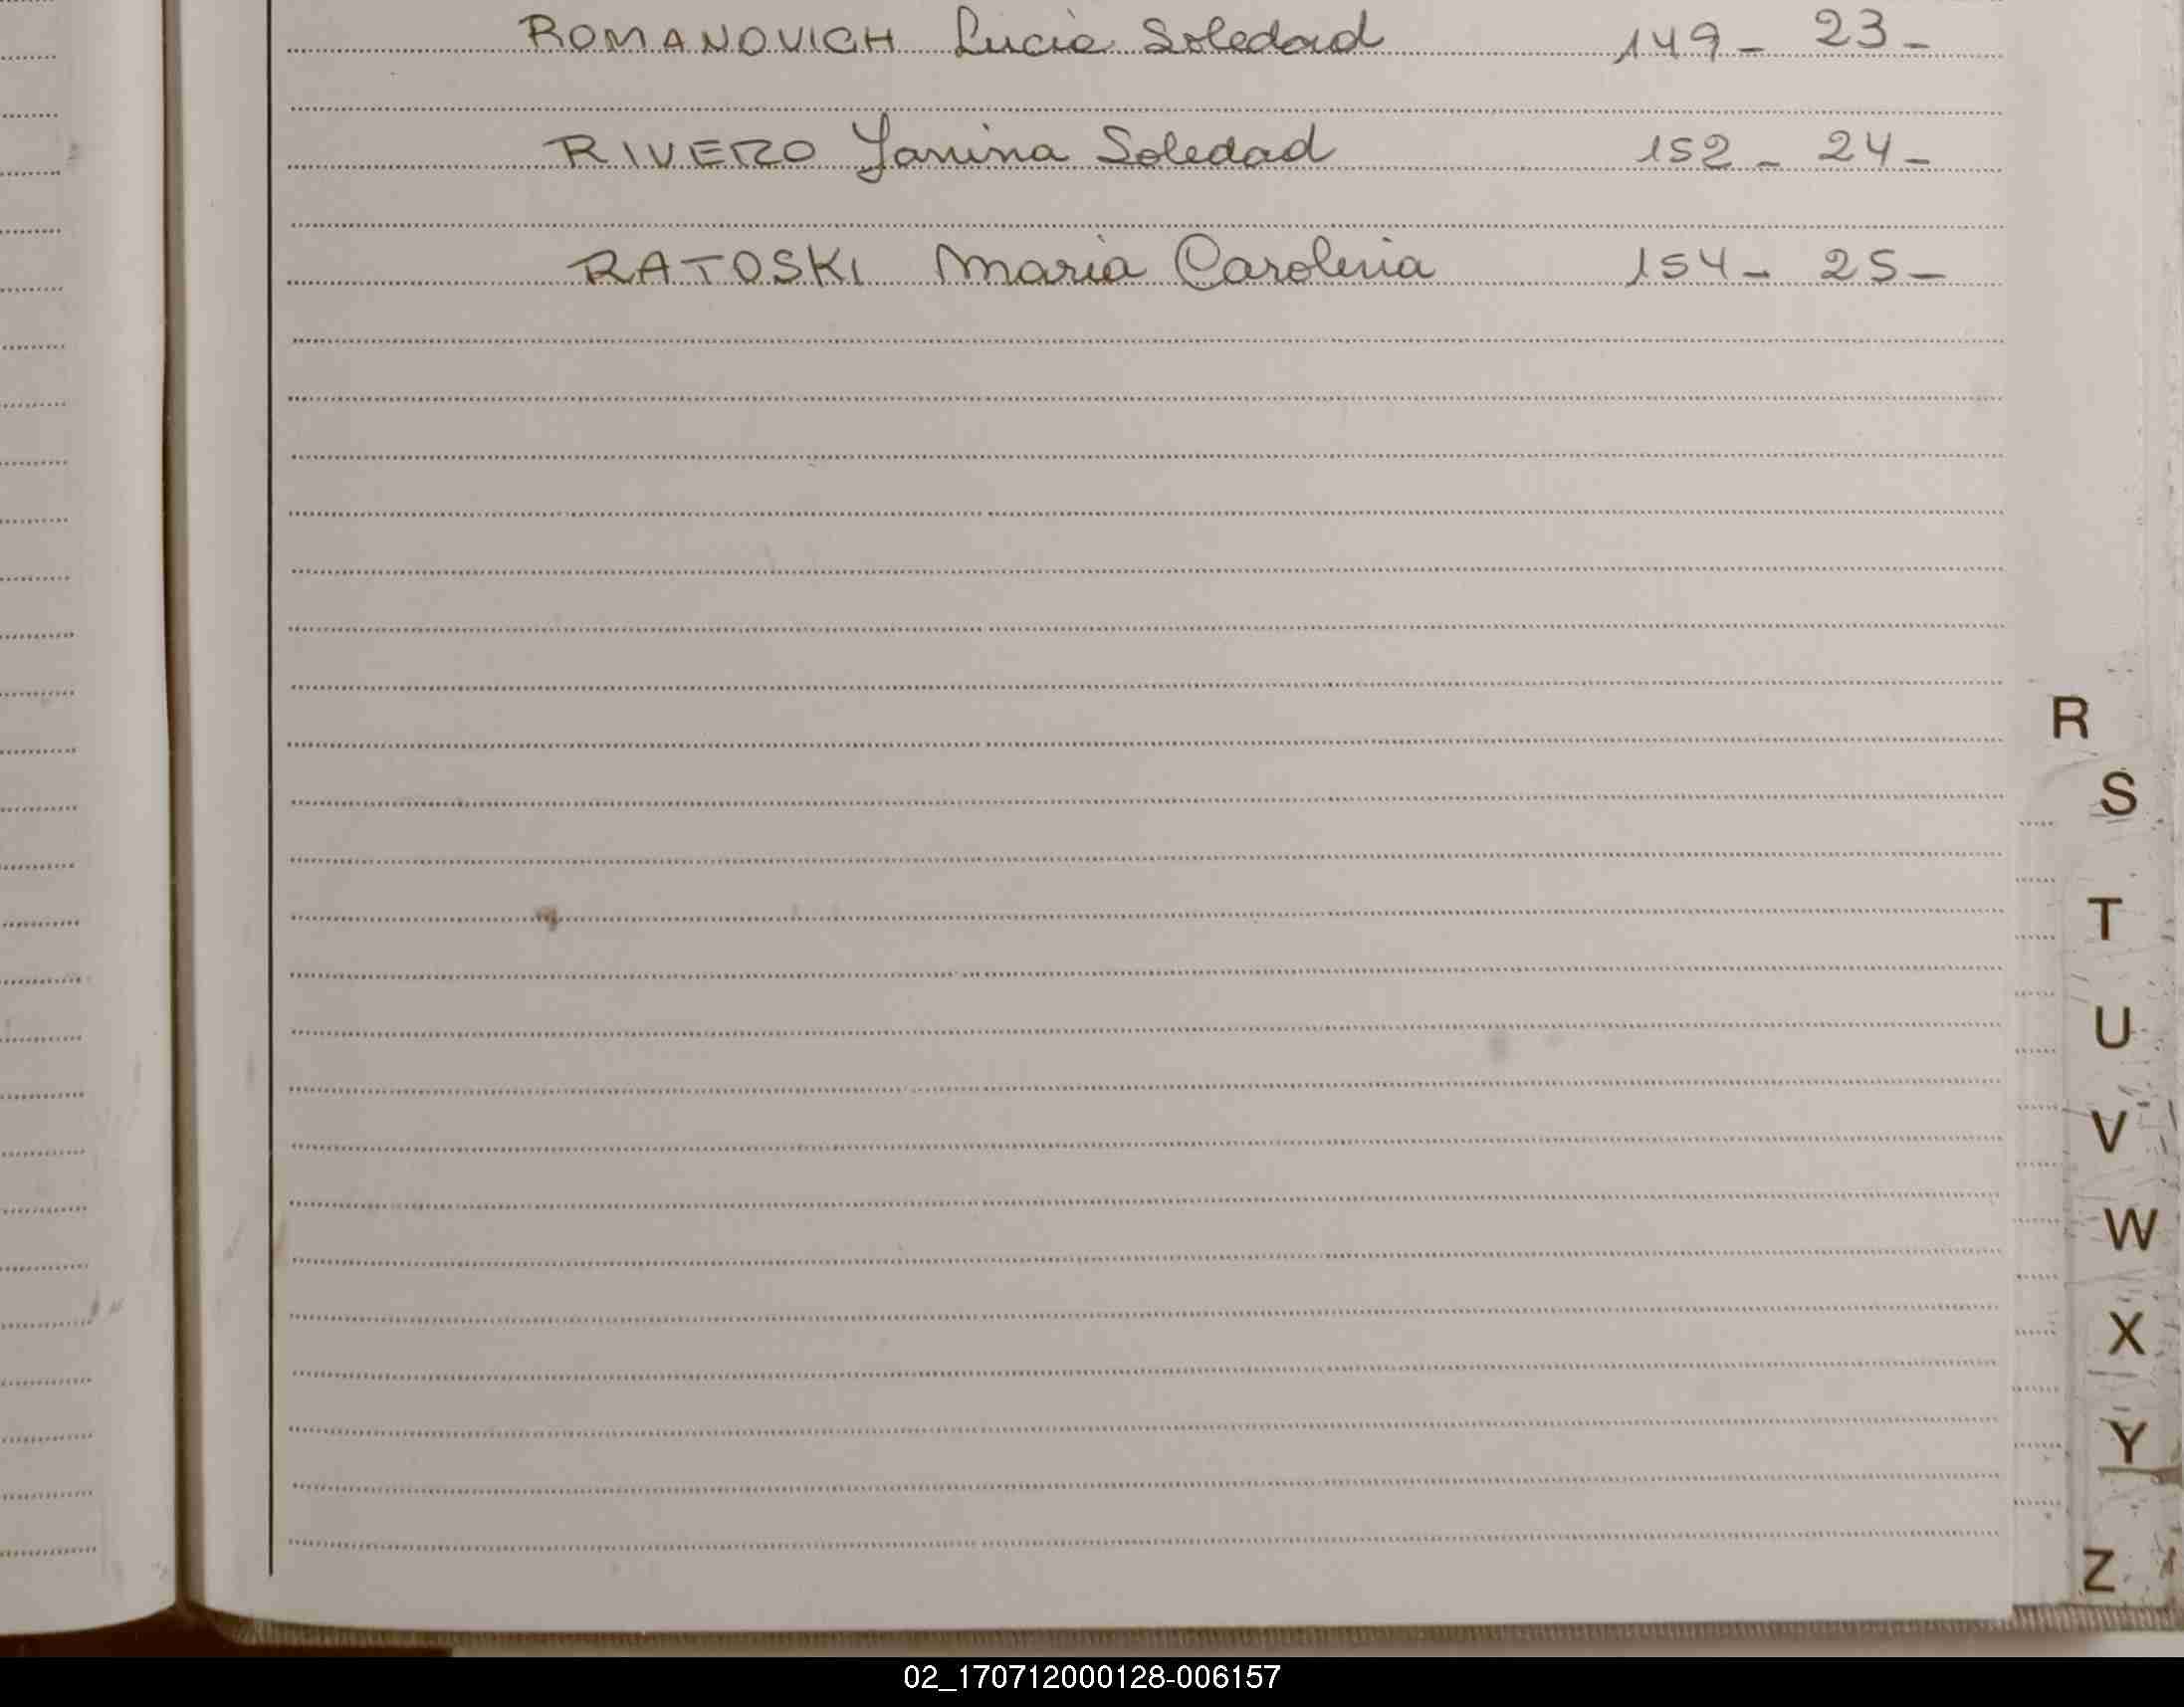 ROMANOVICH Lucia Soledad 149 - 23 -
RIVERO Yanina Soledad 152 - 24 -
RATOSKI Maria Carolina 154 - 25 -
R
S
T
U
V
W
X
Y
Z
02_170712000128-006157